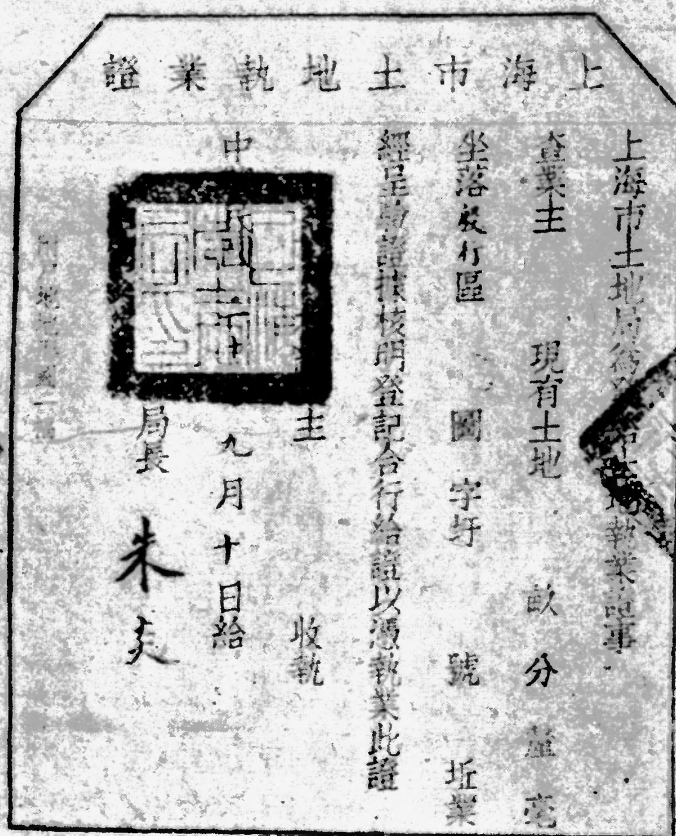 上海市土地執業證
上海市土地局為 土地執業證事
查業主 現有土地 畝 分 釐 毫
坐落殷行區 圖 字圩 號 坵業
經呈 核明登記合行給證以憑執業此證
主 收執
中 九月十日給
局長 朱炎